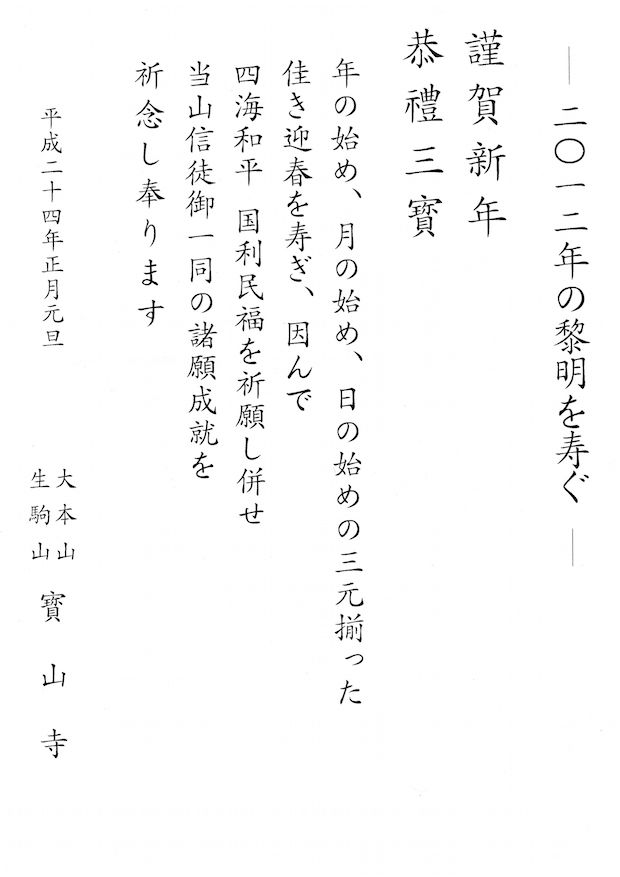 ―二〇一二年の黎明を寿ぐ―
謹賀新年
恭禮三寳
年の始め、月の始め、日の始めの三元揃った
佳き迎春を寿ぎ、因んで
四海和平 国利民福を祈願し併せ
当山信徒御一同の諸願成就を
祈念し奉ります
平成二十四年正月元旦
大本山
生駒山
寳山寺